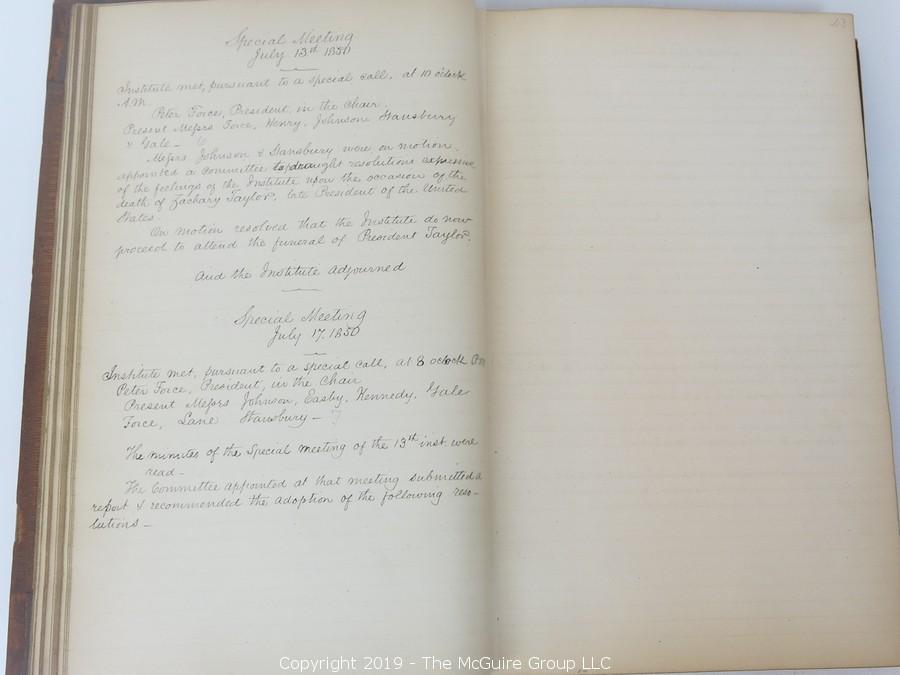 Special Meeting
July 13th 1850
Institute met, pursuant to a special call, at 10 o'clock
A.M.
Peter Force, President, in the Chair.
Present Messrs Force, Henry, Johnson, Stansbury
& Gale — 6
Messrs Johnson & Stansbury were on motion
appointed a committee to draught resolutions expressive
of the feelings of the Institute upon the occasion of the
death of Zachary Taylor, late President of the United
States.
On motion resolved that the Institute do now
proceed to attend the funeral of President Taylor.
And the Institute adjourned
Special Meeting
July 17. 1850
Institute met, pursuant to a special call, at 8 oclock P.M
Peter Force, President, in the Chair
Present Messrs Johnson, Easby, Kennedy, Gale
Force, Lane Stansbury — 7
The minutes of the Special meeting of the 13th inst. were
read —
The Committee appointed at that meeting submitted a
report & recommended the adoption of the following reso-
lutions —
43
Copyright 2019 - The McGuire Group LLC